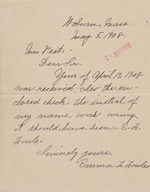 Woburn, Mass.
May 5, 1908.
Dear Sir,
Yours of April 13, 1908
was received. In the en-
closed check: the initial of
my name was wrong.
It should have been E. L.
Fowle.
Sincerely yours,
Emma L. Fowle